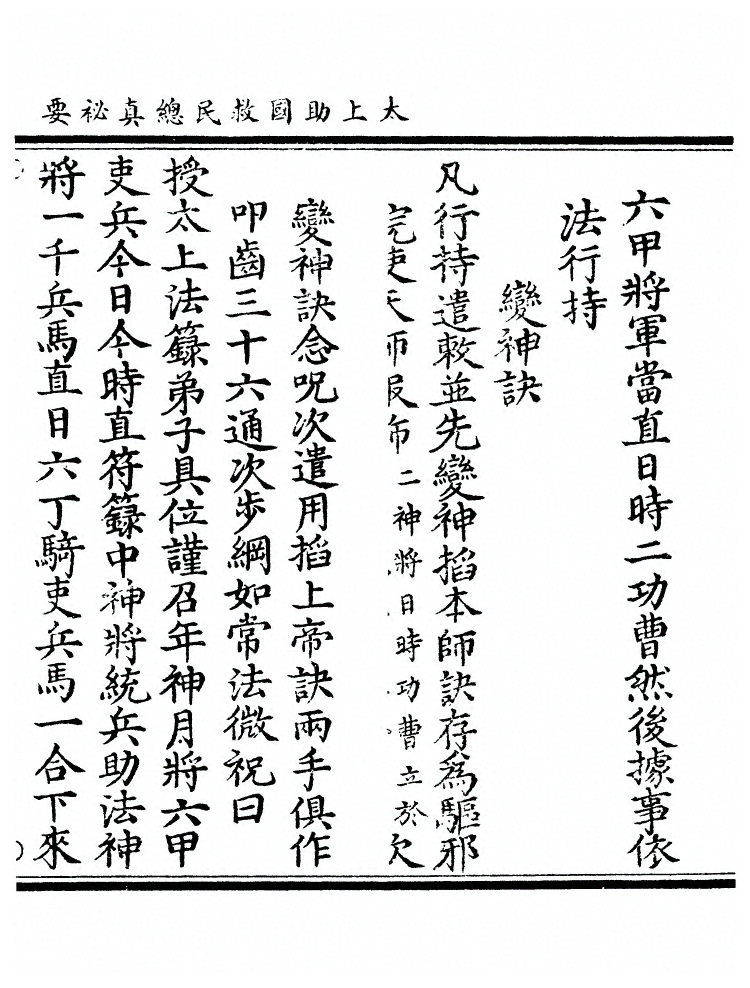 太上助國救民總真祕要
六甲將軍當直日時二功曹然後據事依
法行持
變神訣
凡行持遣敕並先變神搯本師訣存爲驅邪
二神將日時功曹立於
變神訣念呪次遣用搯上帝訣兩手俱作
叩齒三十六通次步綱如常法微祝曰
授太上法籙弟子具位謹召年神月將六甲
吏兵今日今時直符籙中神將統兵助法神
將一千兵馬直日六丁騎吏兵馬一合下來